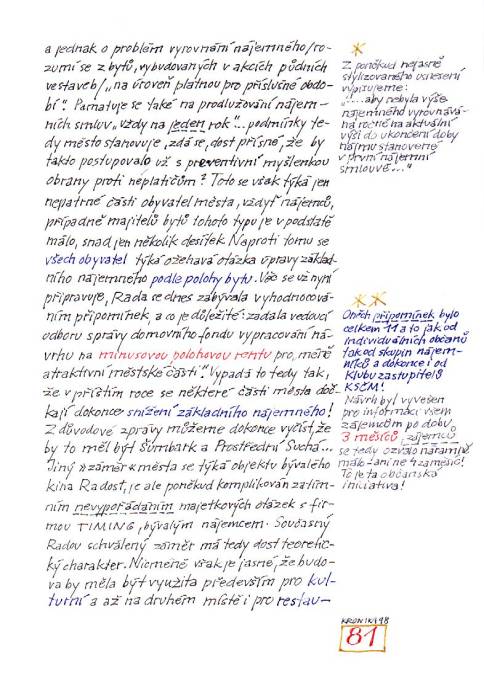 a jednak o problém vyrovnání nájemného /ro-
zumí se z bytů, vybudovaných v akcích půdních
vestaveb/ „na úroveň platnou pro příslušné obdo-
bí“. Pamatuje se také na prodlužování nájem-
ních smluv „vždy na jeden rok“... podmínky te-
dy město stanovuje, zdá se, dost přísné, že by
takto postupovalo už s preventivní myšlenkou
obrany proti neplatičům? Toto se však týká jen
nepatrné části obyvatel města, vždyť nájemců,
případně majitelů bytů tohoto typu je v podstatě
málo, snad jen několik desítek. Naproti tomu se
všech obyvatel týká ožehavá otázka úpravy základ-
ního nájemného podle polohy bytu. Věc se už nyní
připravuje, Rada se dnes zabývala vyhodnocová-
ním připomínek, a co je důležité: zadala vedoucí
odboru správy domovního fondu vypracování ná-
vrhu na minusovou polohovou rentu pro „méně
atraktivní městské části“. Vypadá to tedy tak,
že v příštím roce se některé části města doč-
kají dokonce snížení základního nájemného!
Z důvodové zprávy můžeme dokonce vyčíst, že
by to měl být Šumbark a Prostřední Suchá...
Jiný „záměr“ města se týká objektu bývalého
kina Radost, je ale poněkud komplikován zatím-
ním nevypořádáním majetkových otázek s fir-
mou TIMING, bývalým nájemcem. Současný
Radou schválený záměr má tedy dost teoretic-
ký charakter. Nicméně však je jasné, že budo-
va by měla být využita především pro kul-
turní a až na druhém místě i pro restau-
Z poněkud nejasně
stylizovaného usnesení
vypisujeme:
„...aby nebyla výše
nájemného vyrovnává-
na ročně na aktuální
výši do ukončení doby
nájmu stanovené
v první nájemní
smlouvě...“
Oněch připomínek bylo
celkem 11 a to jak od
individuálních občanů
tak od skupin nájem-
níků a dokonce i od
Klubu zastupitelů
KSČM!
Návrh byl vyvěšen
pro informaci všem
zájemcům po dobu
3 měsíců, zájemců
se tedy ozvalo náramně
málo - ani ne 4 za měsíc!
To je ta občanská
iniciativa!
KRONIKA 98
81